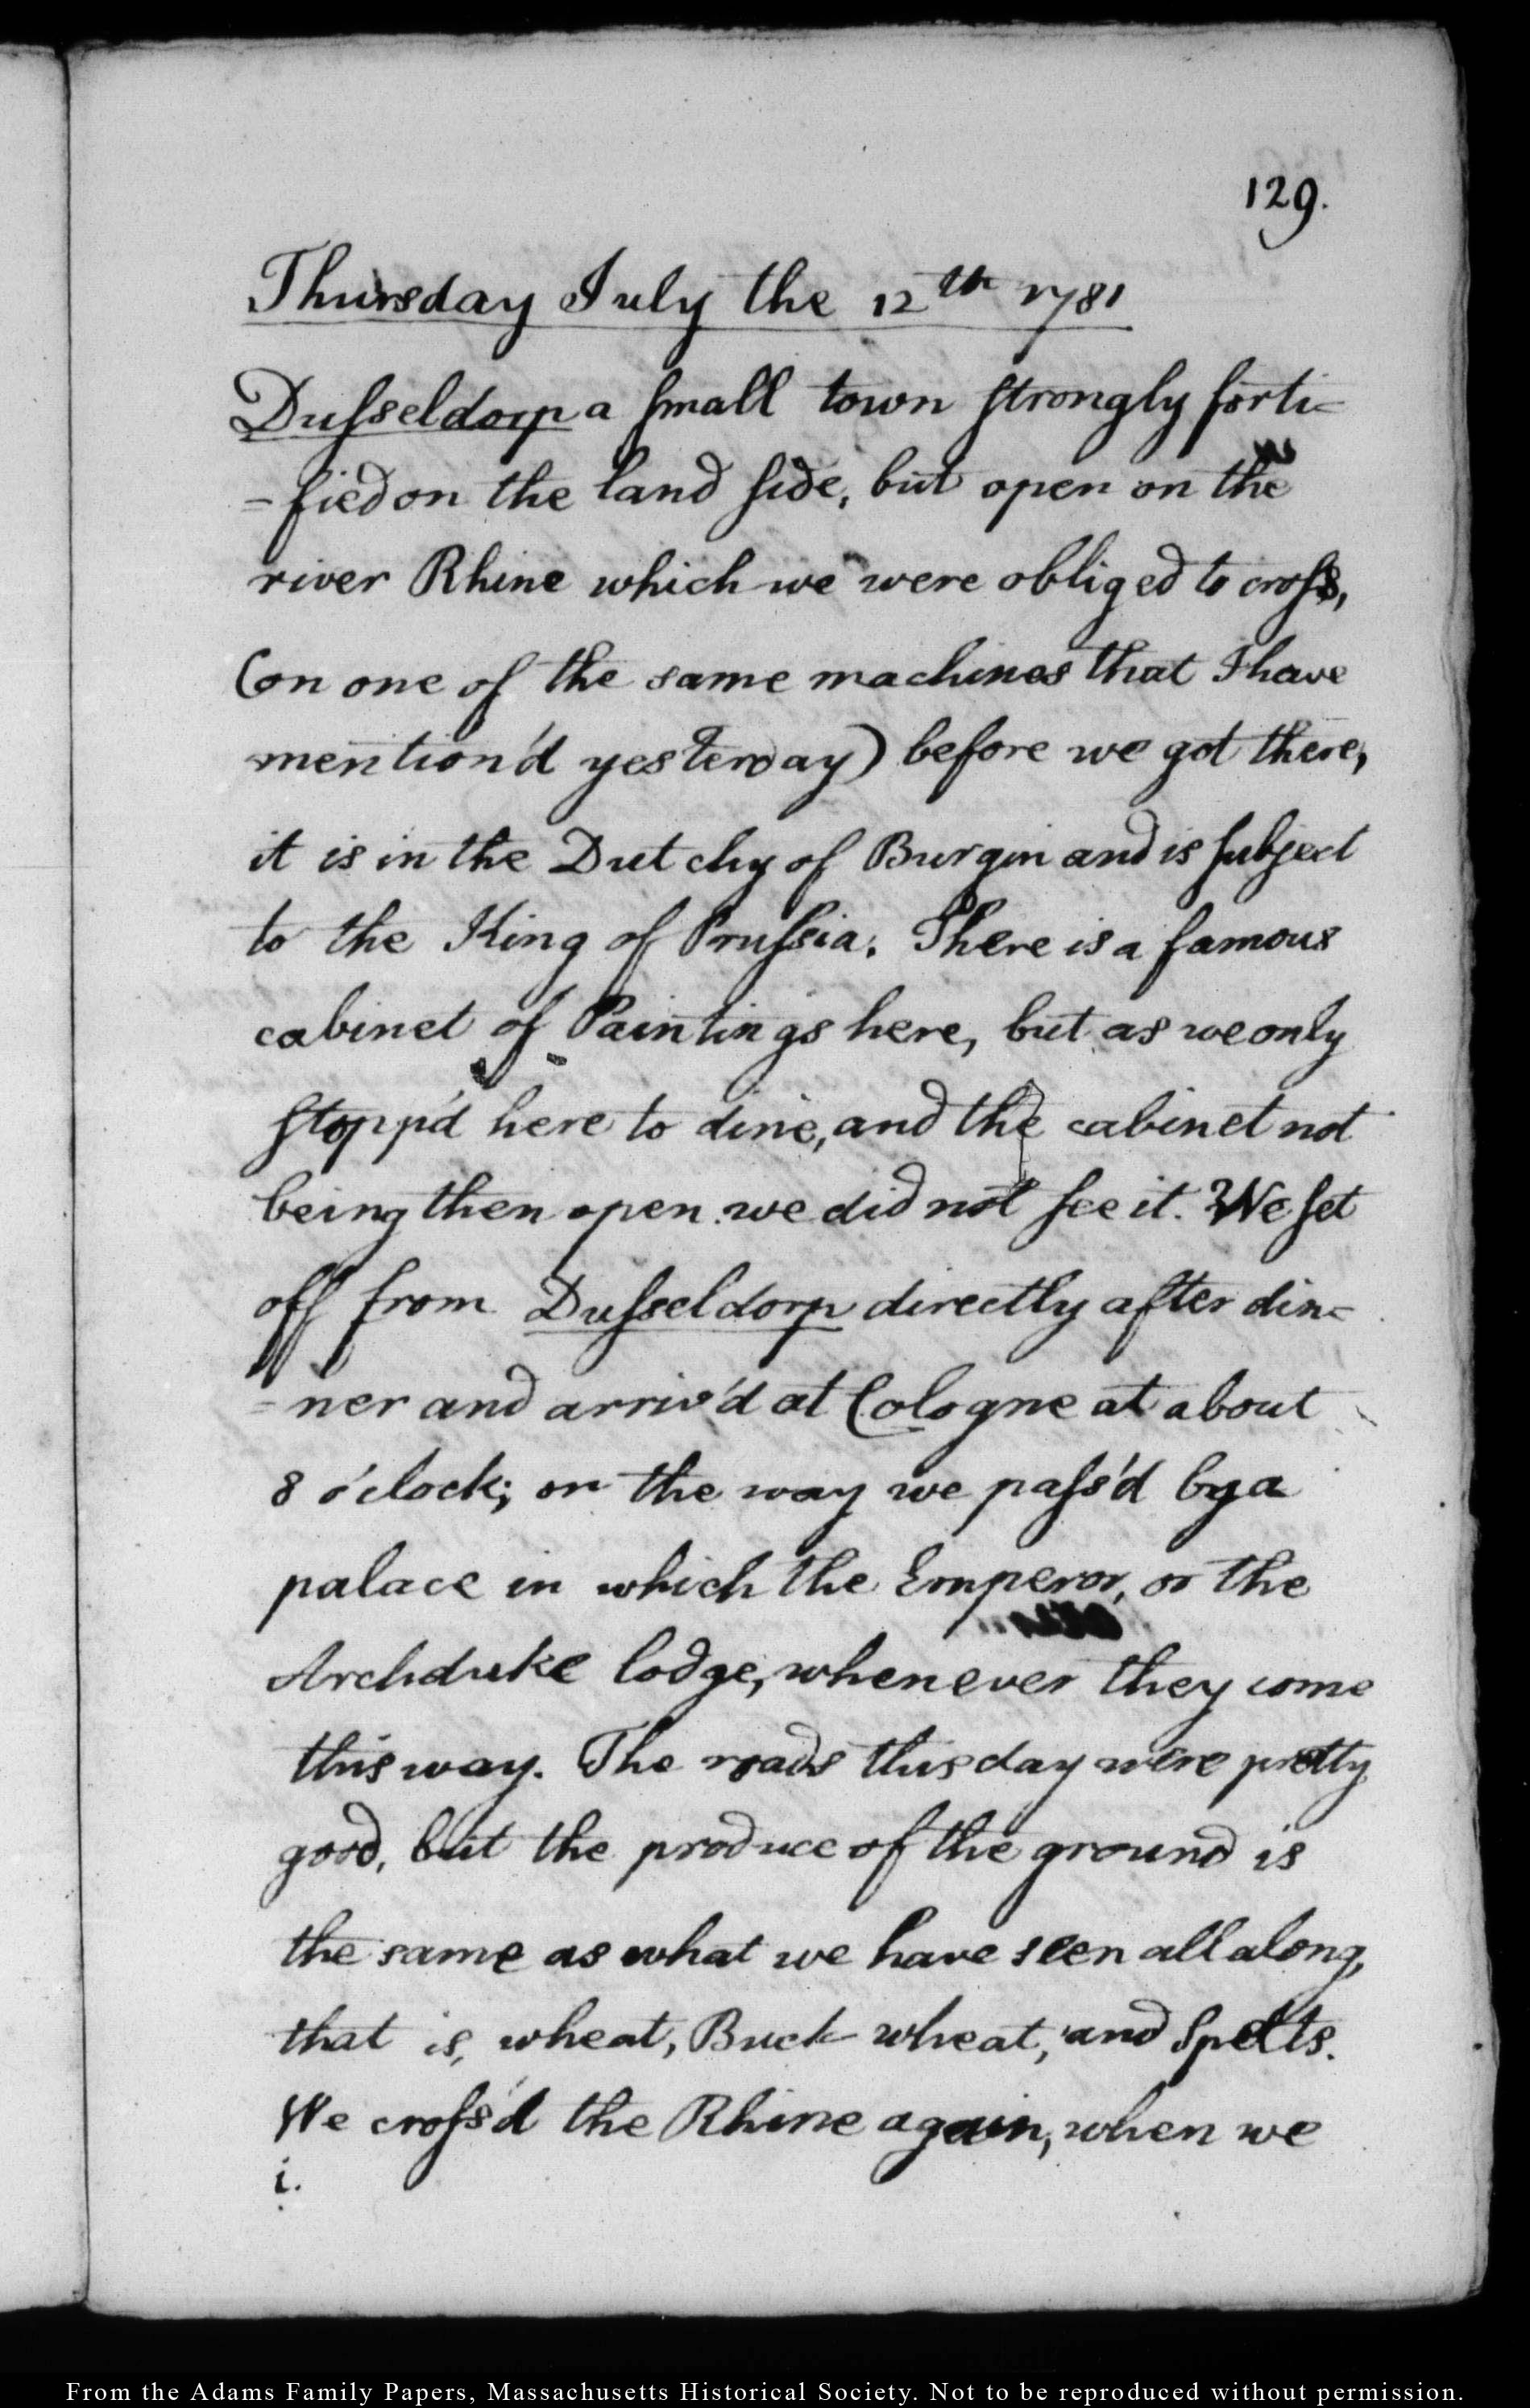 129.
Thursday July the 12th 1781
Dusseldorp a small town strongly forti=
=fied on the land side, but open on the
river Rhine which we were obliged to cross,
(on one of the same machines that I have
mention'd yesterday) before we got there,
it is in the Dutchy of Burgin and is subject
to the King of Prussia. There is a famous
cabinet of Paintings here, but as we only
stopp'd here to dine, and the cabinet not
being then open we did not see it. We set
off from Dusseldorp directly after din=
=ner and arriv'd at Cologne at about
8 o'clock; on the way we pass'd by a
palace in which the Emperor, or the
Archduke lodge, whenever they come
this way. The roads this day were pretty
good, but the produce of the ground is
the same as what we have seen all along,
that is, wheat, Buck wheat, and Spelts.
We cross'd the Rhine again, when we
i.
From the Adams Family Papers, Massachusetts Historical Society. Not to be reproduced without permission.